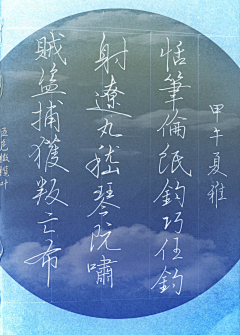 甲午夏雅
恬筆倫紙鈞巧任釣
射遼丸嵇琴阮嘯
賊盜捕獲叛亡布